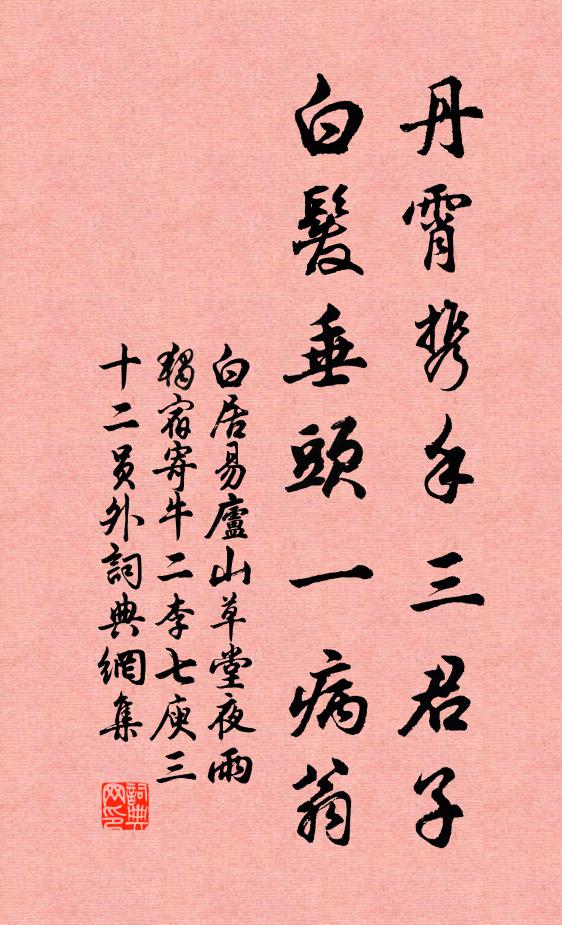 丹霄携手三君子
白髮垂頭一病翁
白居易廬山草堂夜雨
獨宿寄牛二李七庾三
十二員外詞典網集
詞典网印